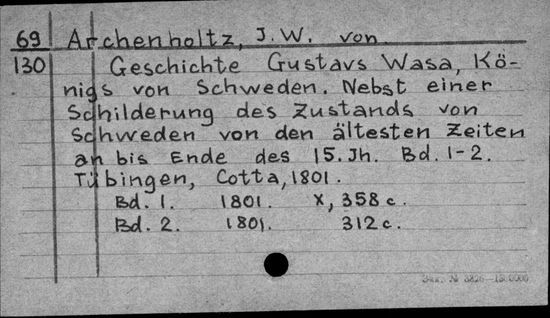 69 Archenholtz, J. W. von
130 Geschichte Gustavs Wasa, Kö-
nigs von Schweden. Nebst einer
Schilderung des Zustands von
Schweden von den ältesten Zeiten
an bis Ende des 15. Jh. Bd. 1-2.
Tübingen, Cotta, 1801.
Bd. 1. 1801. X, 358 c.
Bd. 2. 1801. 312 c.